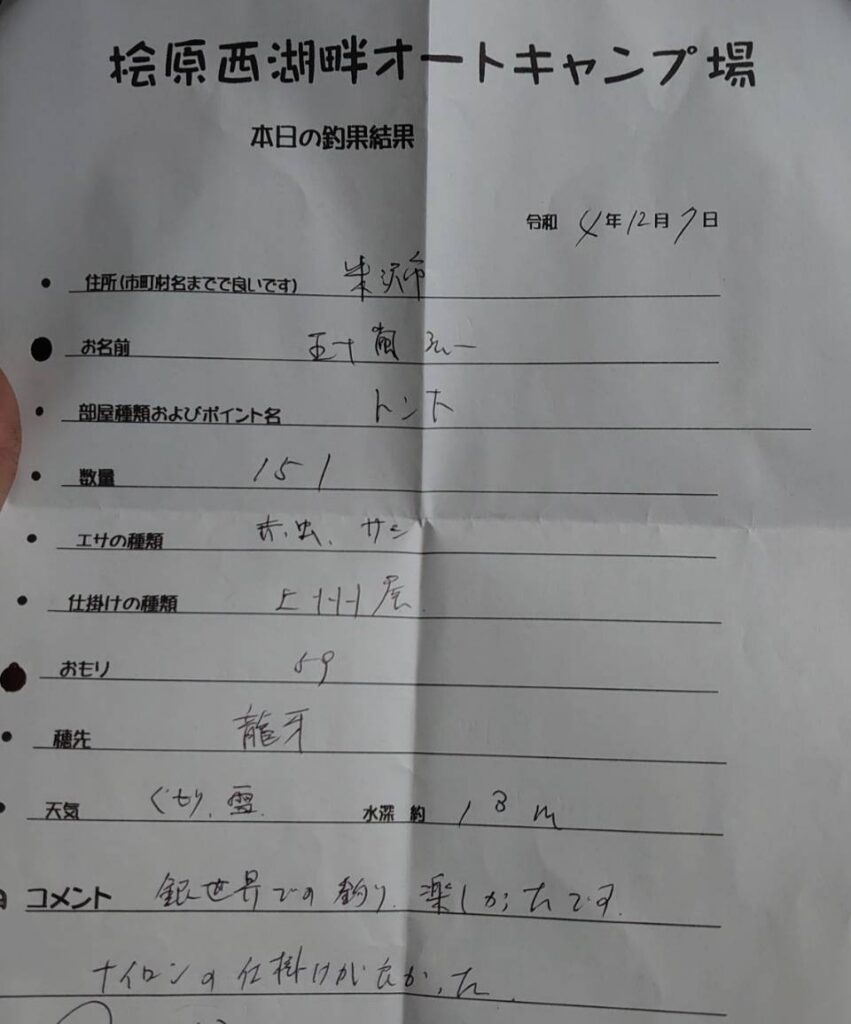 桧原西湖畔オートキャンプ場
本日の釣果結果
令和 4年12月7日
住所(市町村名までで良いです) 米沢市
お名前 五十嵐 弘一
部屋種類およびポイント名 トント
数量 151
エサの種類 赤虫、サシ
仕掛けの種類 上州屋
おもり 5g
穂先 龍牙
天気 くもり、雪 水深 約 13m
コメント 銀世界での釣り、楽しかったです。
ナイロンの仕掛けが良かった。